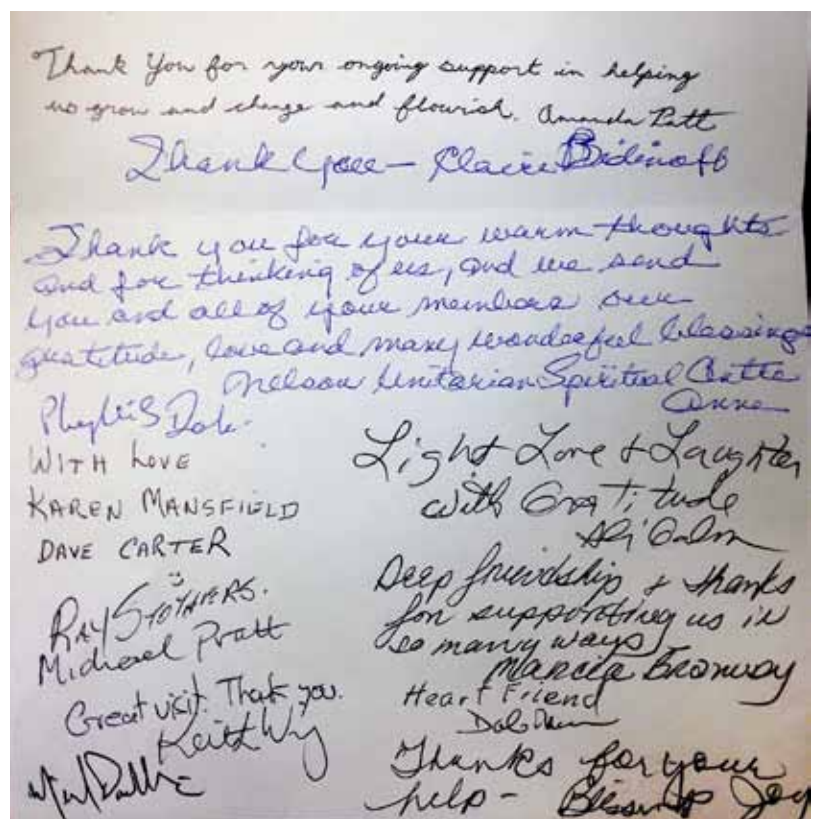 Thank You for your ongoing support in helping
us grow and change and flourish. Amanda Patt
Thank you – Claire Bidinoff
Thank you for your warm thoughts
and for thinking of us, and we send
you and all of your members our
gratitude, love and many wonderful blessings
Nelson Unitarian Spiritual Centre
Anne
Phyllis
WITH LOVE
KAREN MANSFIELD
DAVE CARTER
RAY STOTHERS.
Michael Pratt
Great visit. Thank you.
Keith
Light Love & Laughter
with Gratitude
Deep friendship & thanks
for supporting us in
so many ways
Marcia Bronwoy
Heart Friend
Thanks for your
help – Blessings Joy